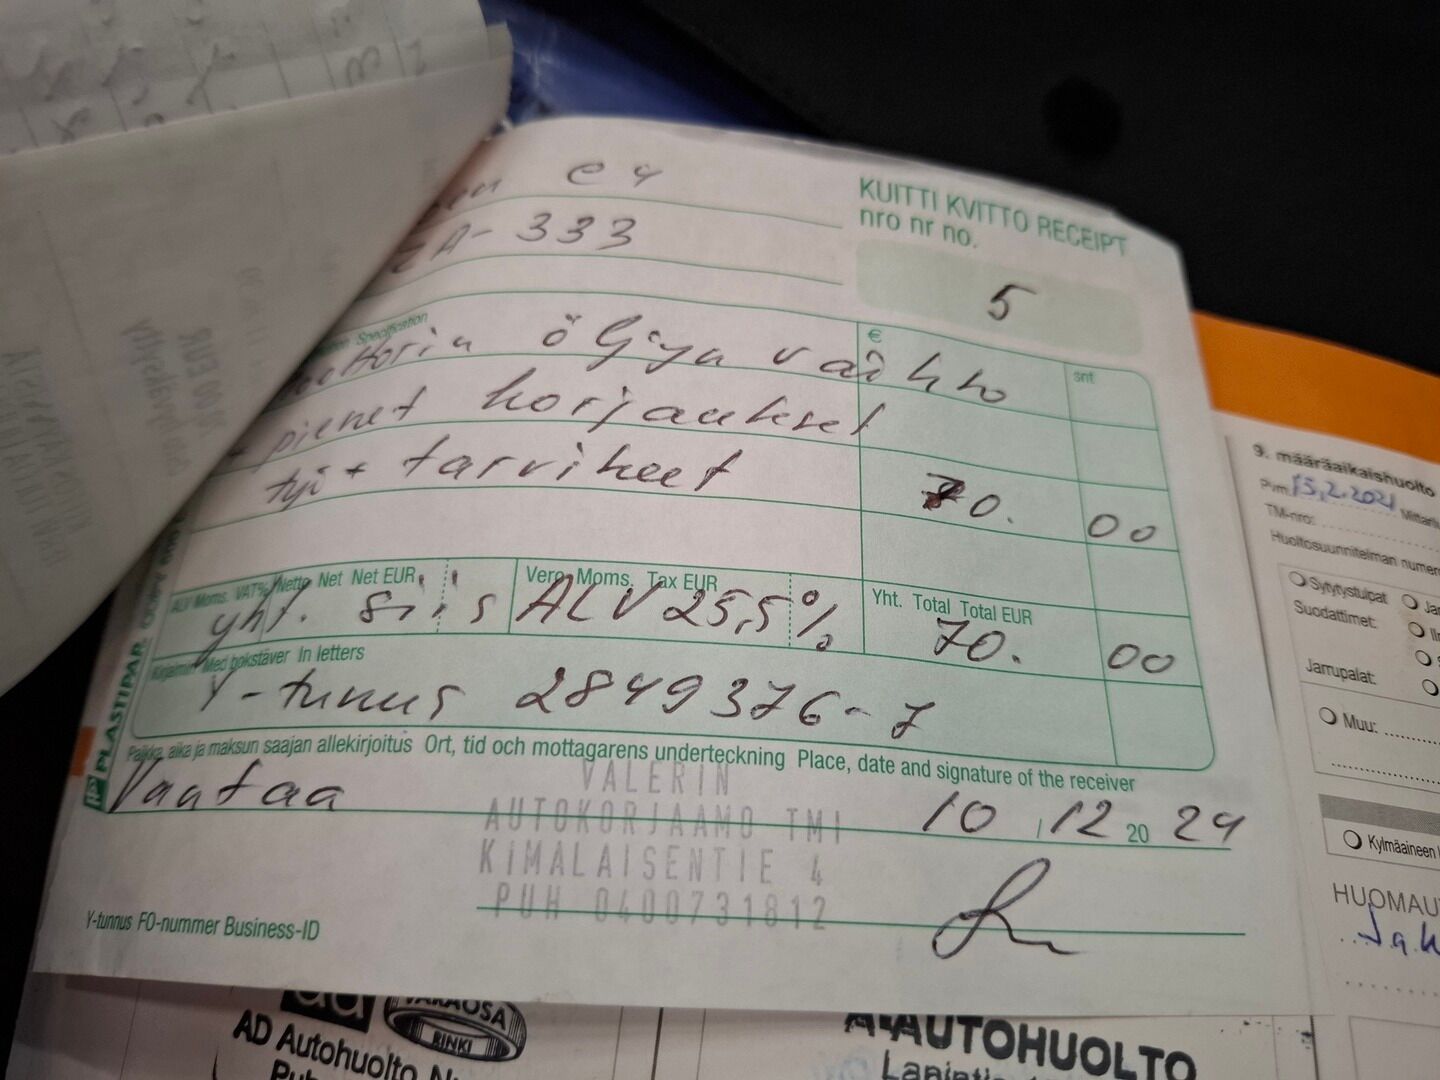 C4
KUITTI KVITTO RECEIPT
nro nr no.
A-333
5
Specification
€
snt
öljyn vaihto
pienet korjaukset
työ + tarvikeet
70. 00
ALV Moms. VAT% Netto Net Net EUR
Vero Moms. Tax EUR
Yht. Total Total EUR
yht. siis ALV 25,5%
70. 00
Med bokstäver In letters
Y-tunus 2849376-7
Paikka, aika ja maksun saajan allekirjoitus Ort, tid och mottagarens underteckning Place, date and signature of the receiver
Vantaa
10 / 12 20 24
VALERIN
AUTOKORJAAMO TMI
KIMALAISENTIE 4
PUH 0400731812
Y-tunnus FO-nummer Business-ID
PLASTIPAR
9. määräaikaishuolto
Pvm. 15.2.2021
TM-nro:
Huoltosuunnitelman
Sytytystulpat
Suodattimet:
Jarrupalat:
Muu:
Kylmäaineen
AD Autohuolto
VARAOSA
RINKI
A-AUTOHUOLTO